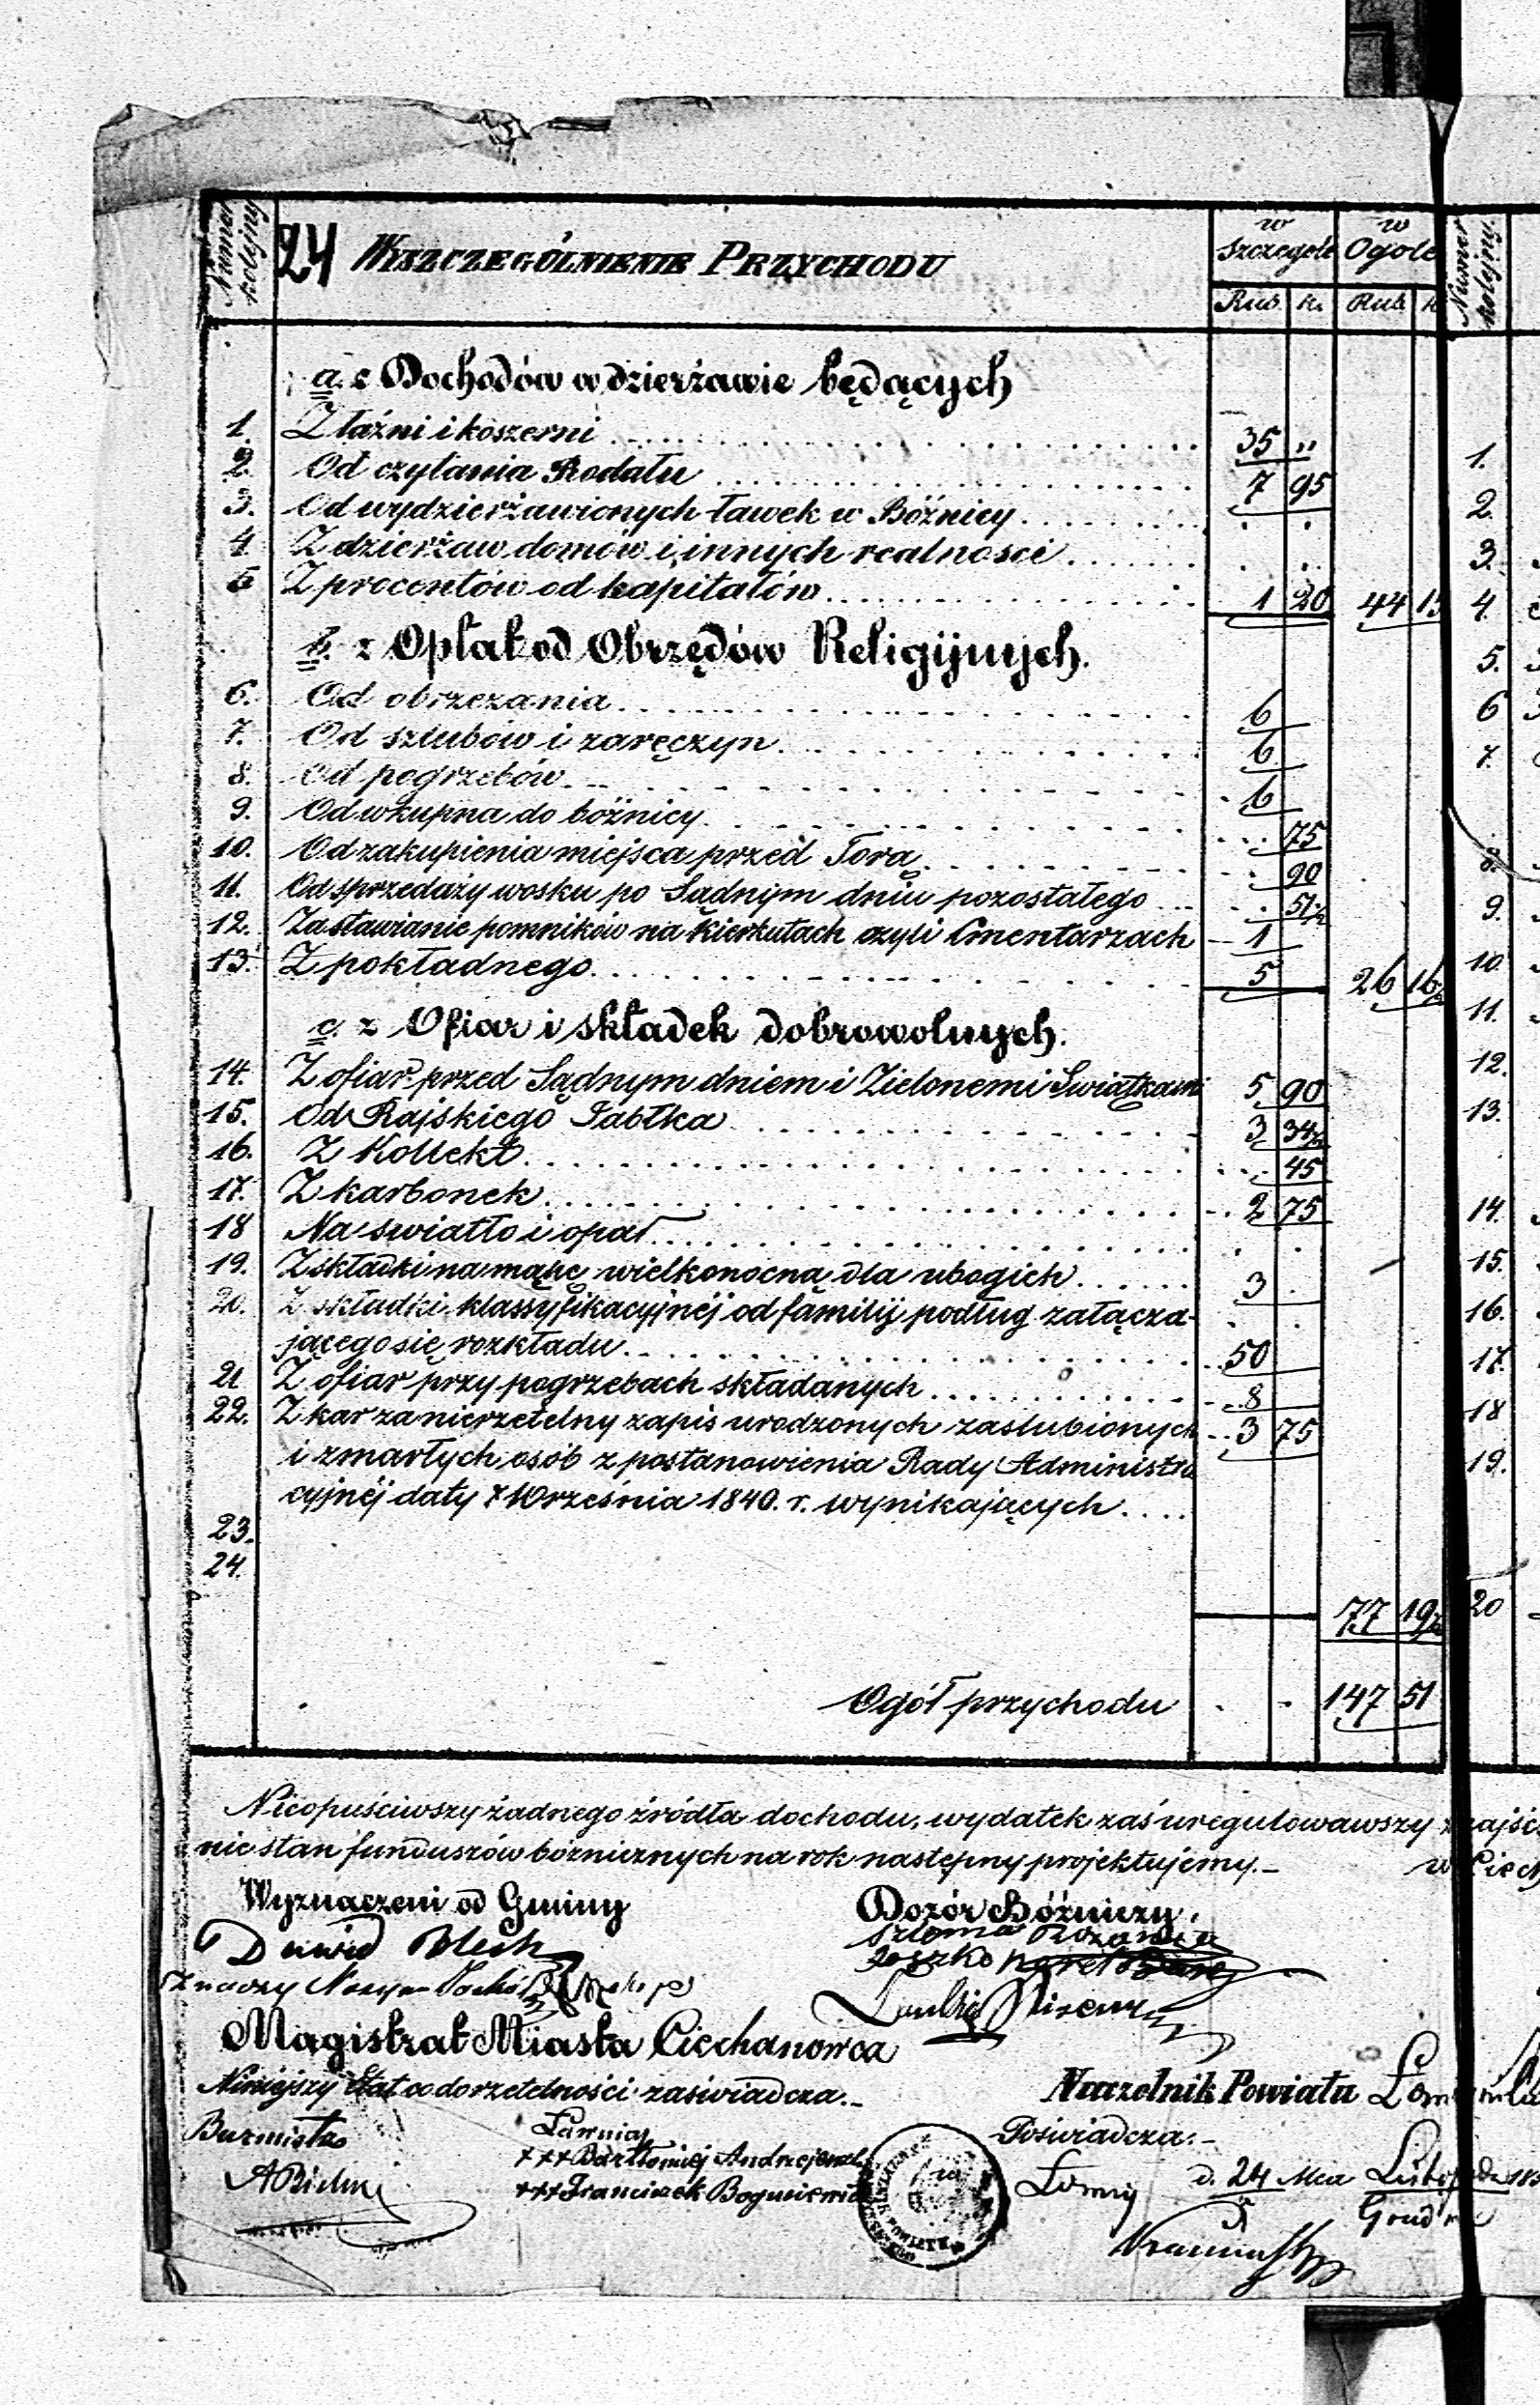 Numer kolejny
24 WYSZCZEGÓLNIENIE PRZYCHODU
w Szczególe
w Ogóle
Numer kolejny.
Rub. k. Rub. k
a. z Dochodów w dzierżawie będących
1. Z łaźni i koszerni 35 "
2. Od czytania Rodału 7 95
3. Od wydzierżawionych ławek w Bóźnicy
4 Z dzierżaw domów i innych realności
5 Z procentów od kapitałów 1 20 44 15
b. z Opłat od Obrzędów Religijnych.
6. Od obrzezania 6
7. Od szlubów i zaręczyn 6
8. Od pogrzebów 6
9. Od wkupna do bóźnicy 75
10. Od zakupienia miejsca przed Torą 90
11. Od sprzedaży wosku po Sądnym dniu pozostałego 51½
12. Za stawianie pomników na Kierkutach czyli Cmentarzach 1
13. Z pokładnego 5 26 16½
c. z Ofiar i składek dobrowolnych.
14. Z ofiar przed Sądnym dniem i Zielonemi Swiątkami 5 90
15. Od Rajskiego Jabłka 3 34½
16. Z Kollekt 45
17. Z karbonek 2 75
18 Na swiatło i opał
19. Z składki na mąkę wielkonocną dla ubogich 3
20. Z składki klassyfikacyjnéj od familij podług załącza-
jącego się rozkładu 50
21 Z ofiar przy pogrzebach składanych 8
22. Z kar za nierzetelny zapis urodzonych zaslubionych 3 75
i zmarłych osób z postanowienia Rady Administra
cyjnéj daty 7 Września 1840. r. wynikających
23.
24.
77 19½
Ogół przychodu 147 51
1.
2.
3.
4.
5.
6
7.
8.
9.
10.
11.
12.
13.
14.
15.
16.
17.
18
19.
20
Nieopuściwszy żadnego źródła dochodu, wydatek zaś uregulowawszy
nie stan funduszów bóżnicznych na rok następny projektujemy.
Wyznaczeni od Gminy
Dozór Bóżniczy.
Dawid
Szloma
Magistrat Miasta Ciechanowca
Niniejszy Etat co do rzetelności zaświadcza.
Naczelnik Powiatu
Burmistrz
Ławnicy
Poświadcza.
+++ Bartłomiej
+++ Franciszek
d. 24 Mca